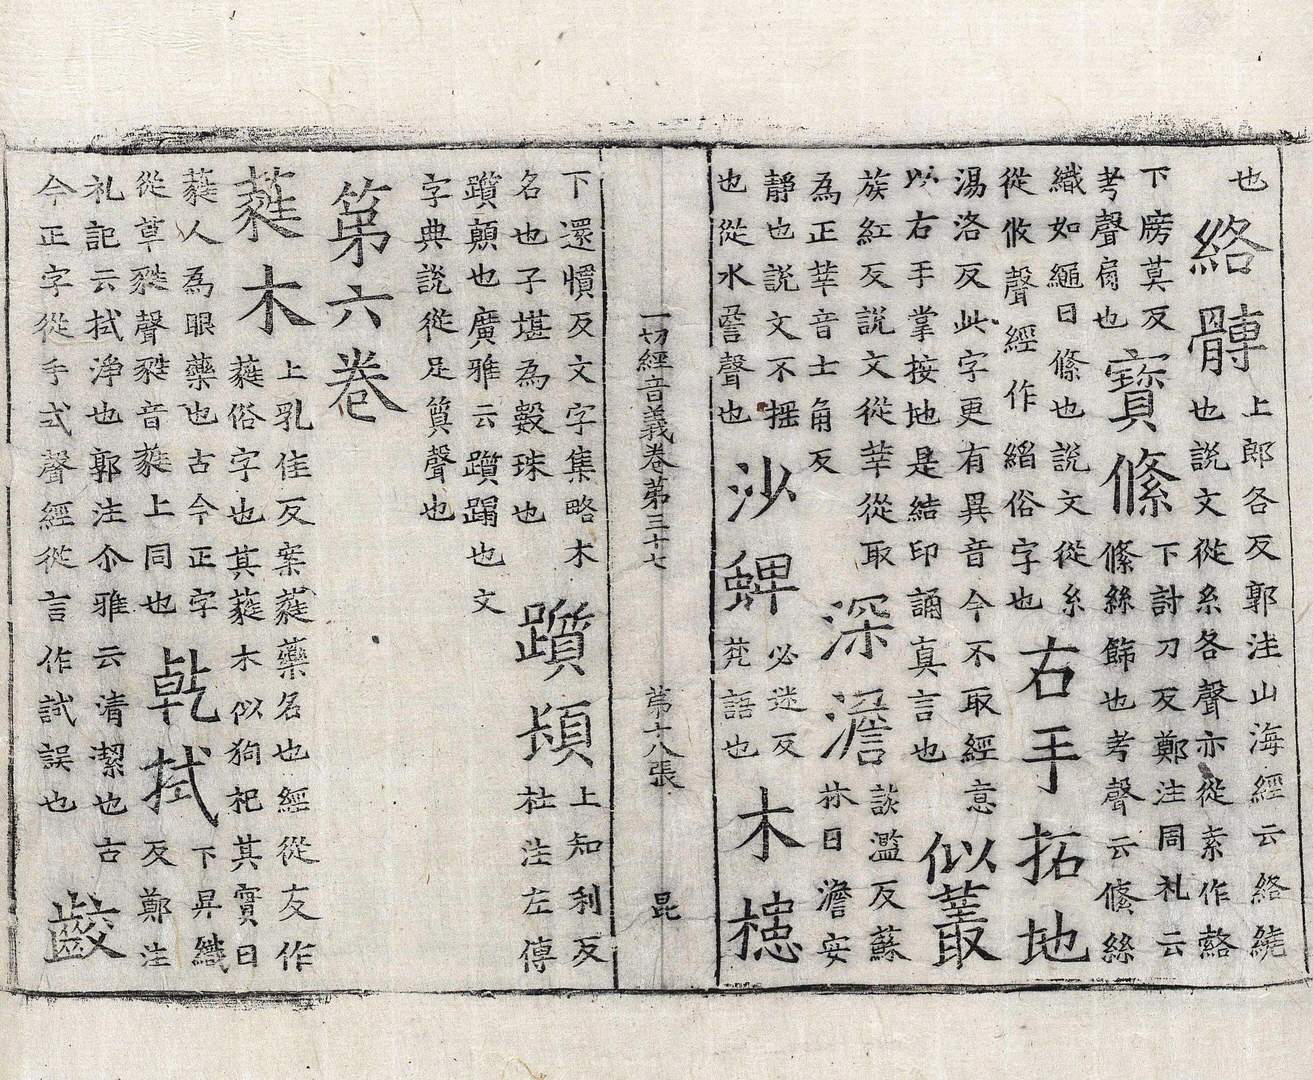 也
絡髆
上郎各反郭注山海經云絡繞
也說文從糸各聲亦從索作䋤
下牓莫反
考聲肩也
寶絛
下討刀反鄭注周礼云
絛絲飾也考聲云絛絲
織如繩曰絛也說文從糸
從攸聲經作縚俗字也
右手拓地
湯洛反此字更有異音今不取經意
以右手掌按地是結印誦真言也
似叢
族紅反說文從丵從取
為正丵音士角反
深澹
談濫反蘇
林曰澹安
靜也說文不摇
也從水詹聲也
沙蜱
必迷反
梵語也
木槵
一切經音義卷第三十七 第十八張 昆
下還慣反文字集略木
名也子堪為數珠也
躓頓
上知利反
杜注左傳
躓顛也廣雅云躓蹋也文
字典說從足質聲也
第六卷
蕤木
上乳隹反案蕤藥名也經從友作
蕤俗字也其蕤木似狗杞其實曰
蕤人為眼藥也古今正字
從草甤聲甤音蕤上同也
乾拭
下昇織
反鄭注
礼記云拭淨也郭注尒雅云清潔也古
今正字從手式聲經從言作試誤也
齩